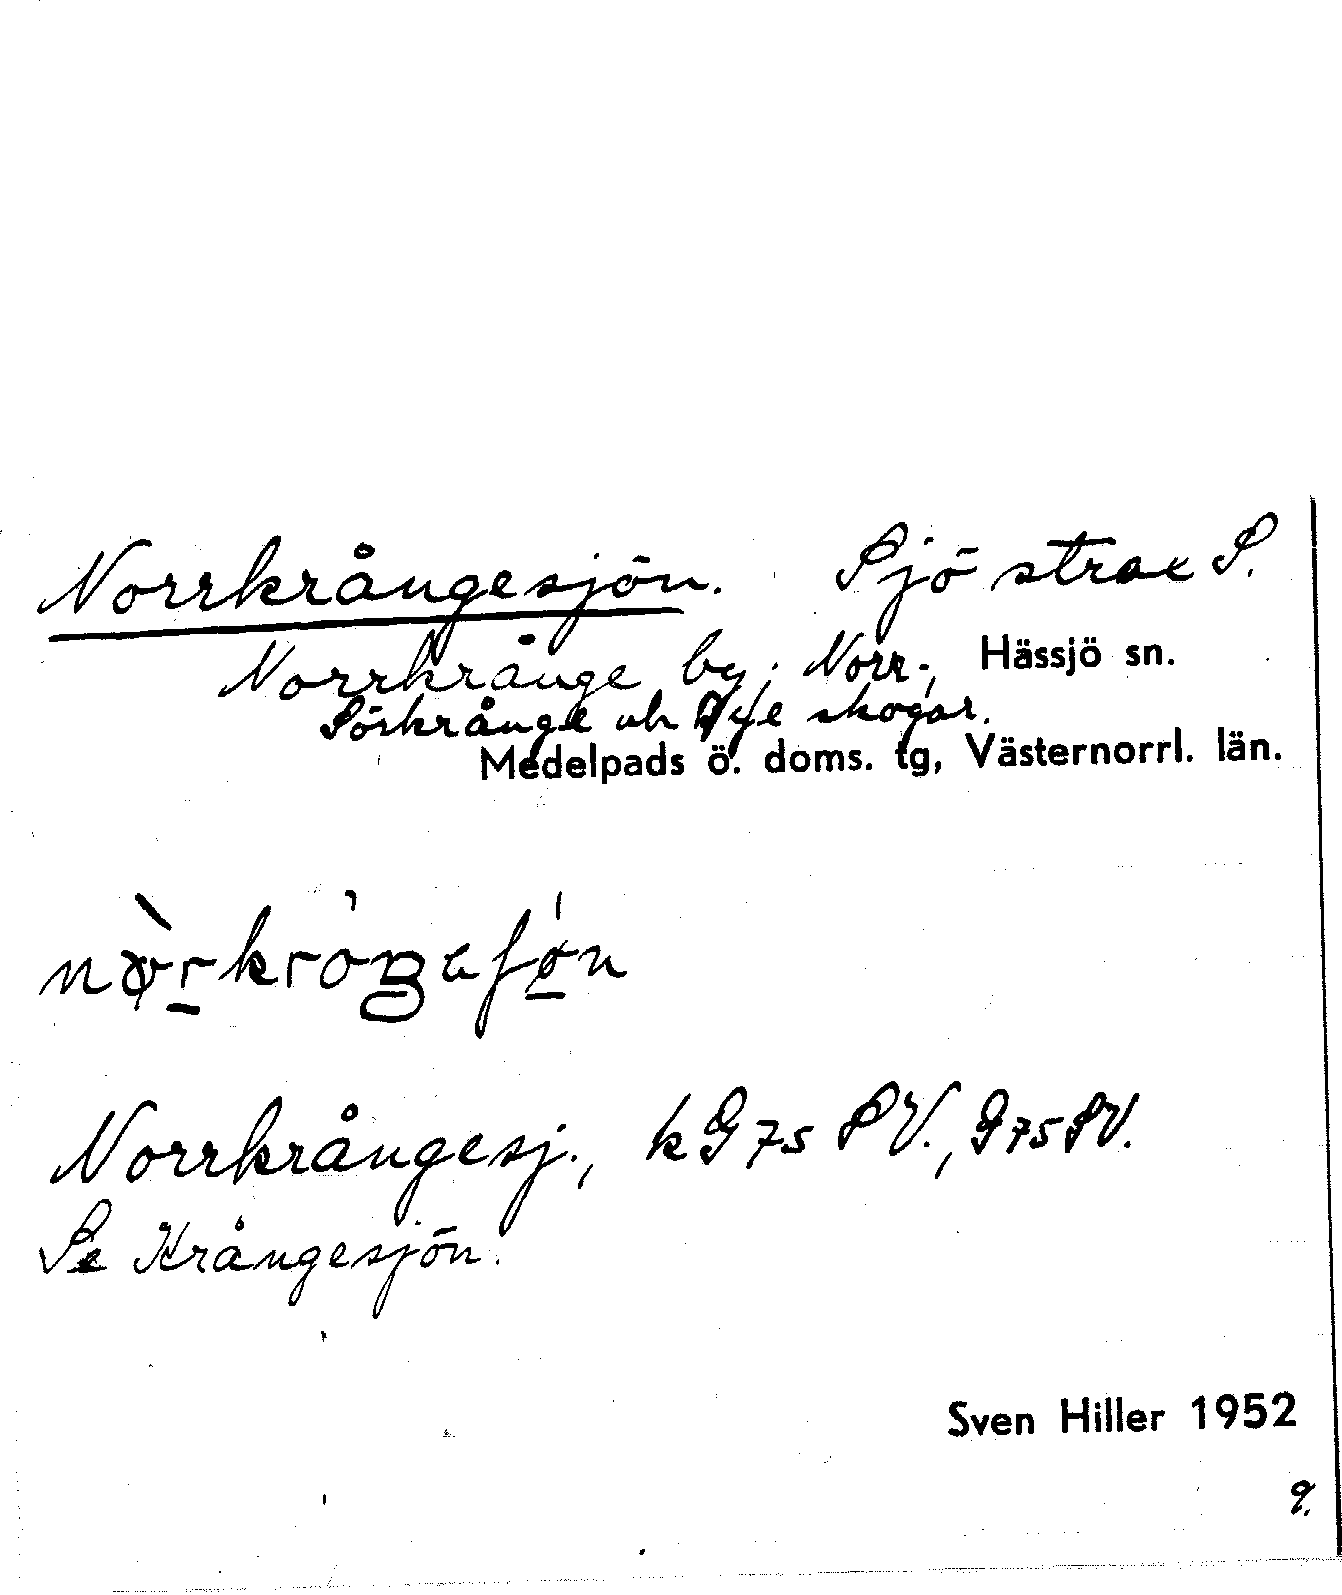 Norrkrångesjön. Sjö strax S.
Norrkrånge by; Norr-, Hässjö sn.
Sörkrånge och Dye skogar.
Medelpads ö. doms. tg, Västernorrl. län.
Norrkrångesj., kG 75 SV., G 75 SV.
Se Krångesjön.
Sven Hiller 1952
9.